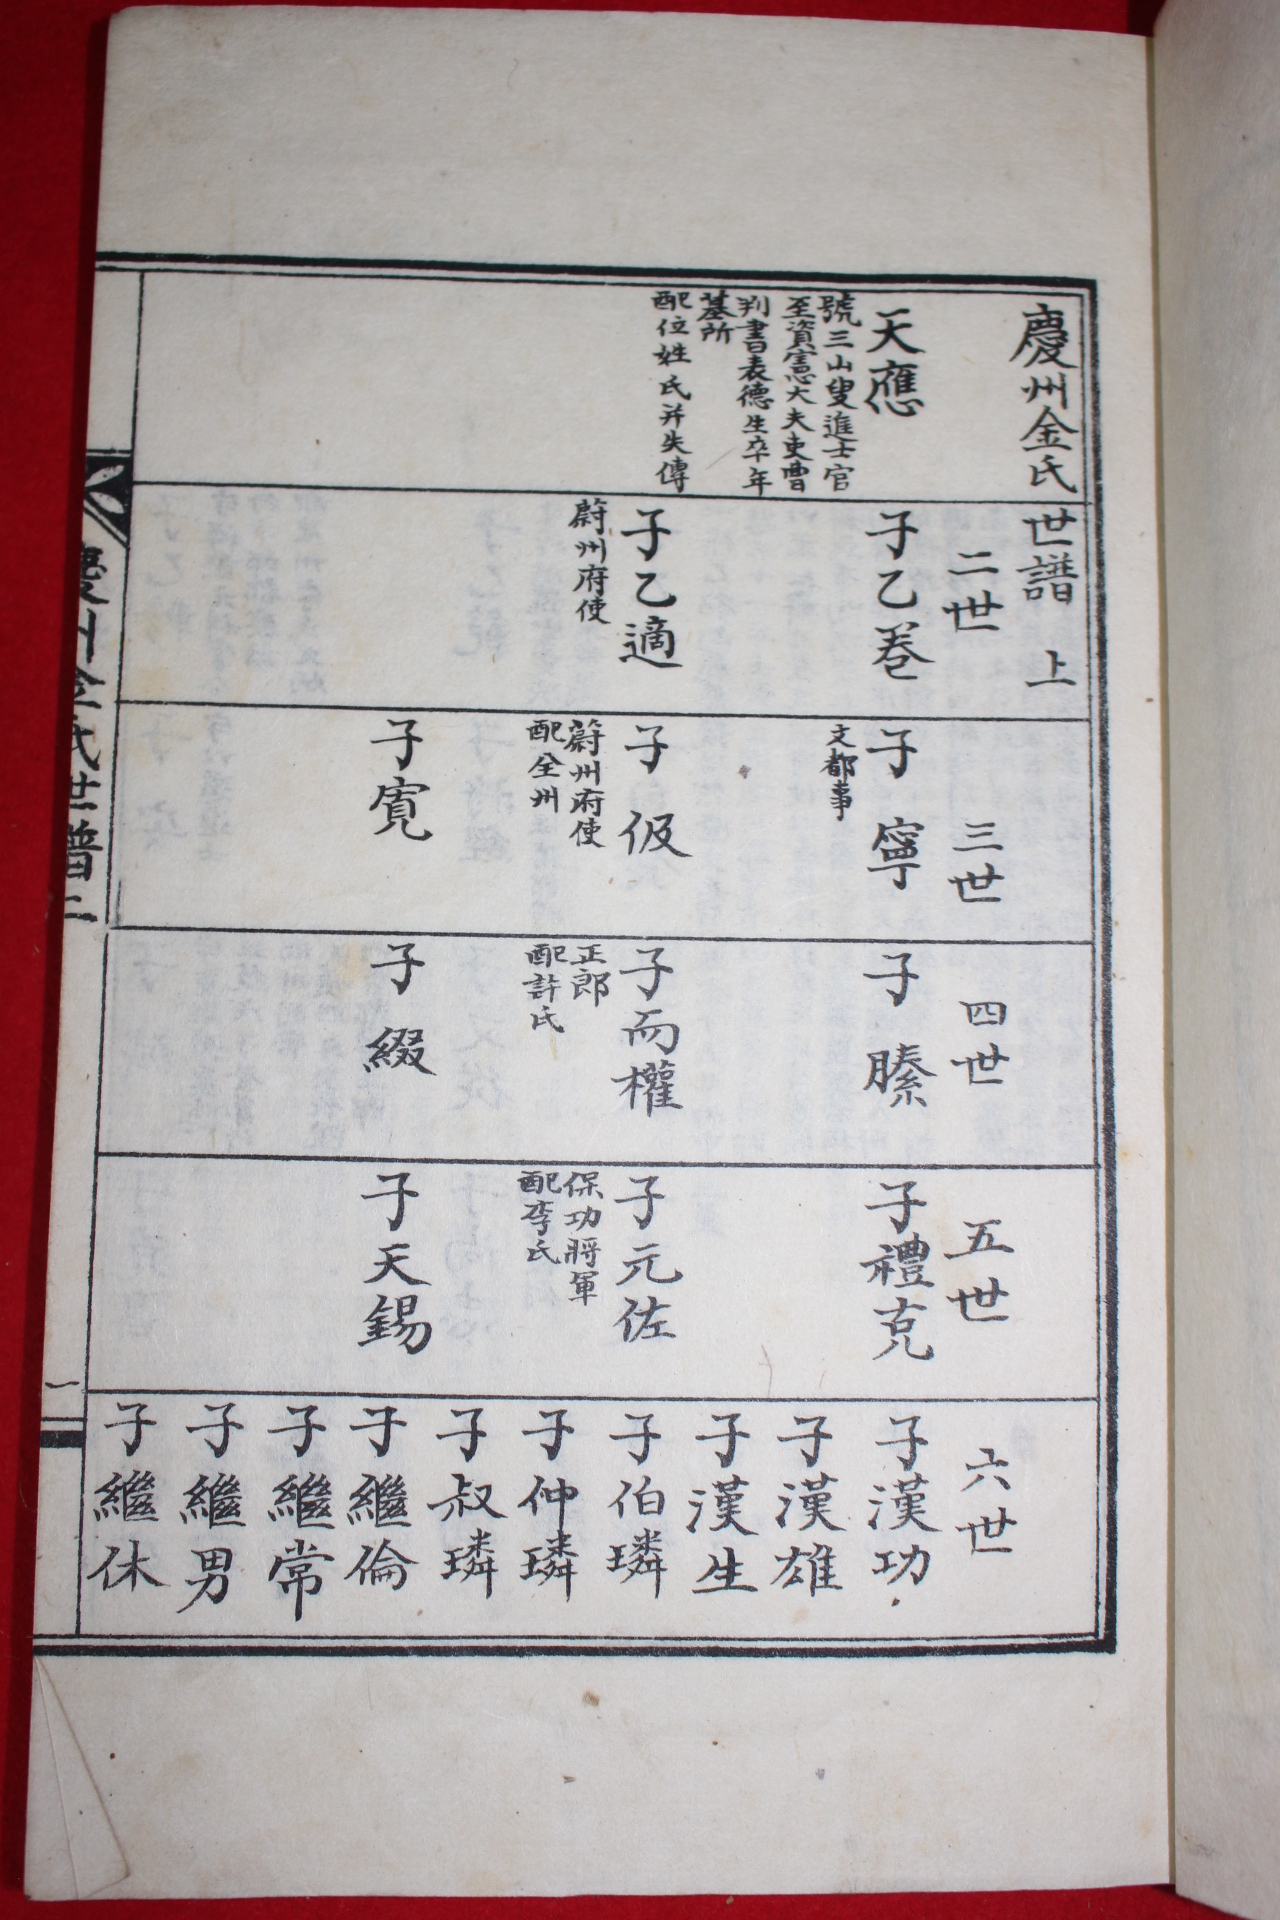 慶州金氏世譜 上
二世
三世
四世
五世
六世
天應
號三山叟進士官
至資憲大夫吏曹
判書表德生卒年
墓所
配位姓氏并失傳
子乙卷
子乙適
蔚州府使
子寧
文都事
子伋
蔚州府使
配全州
子寬
子榛
子而權
正郎
配許氏
子綴
子禮克
子元佐
保功將軍
配李氏
子天錫
子漢功
子漢雄
子漢生
子伯璘
子仲璘
子叔璘
子繼倫
子繼常
子繼男
子繼休
慶州金氏世譜 上
一